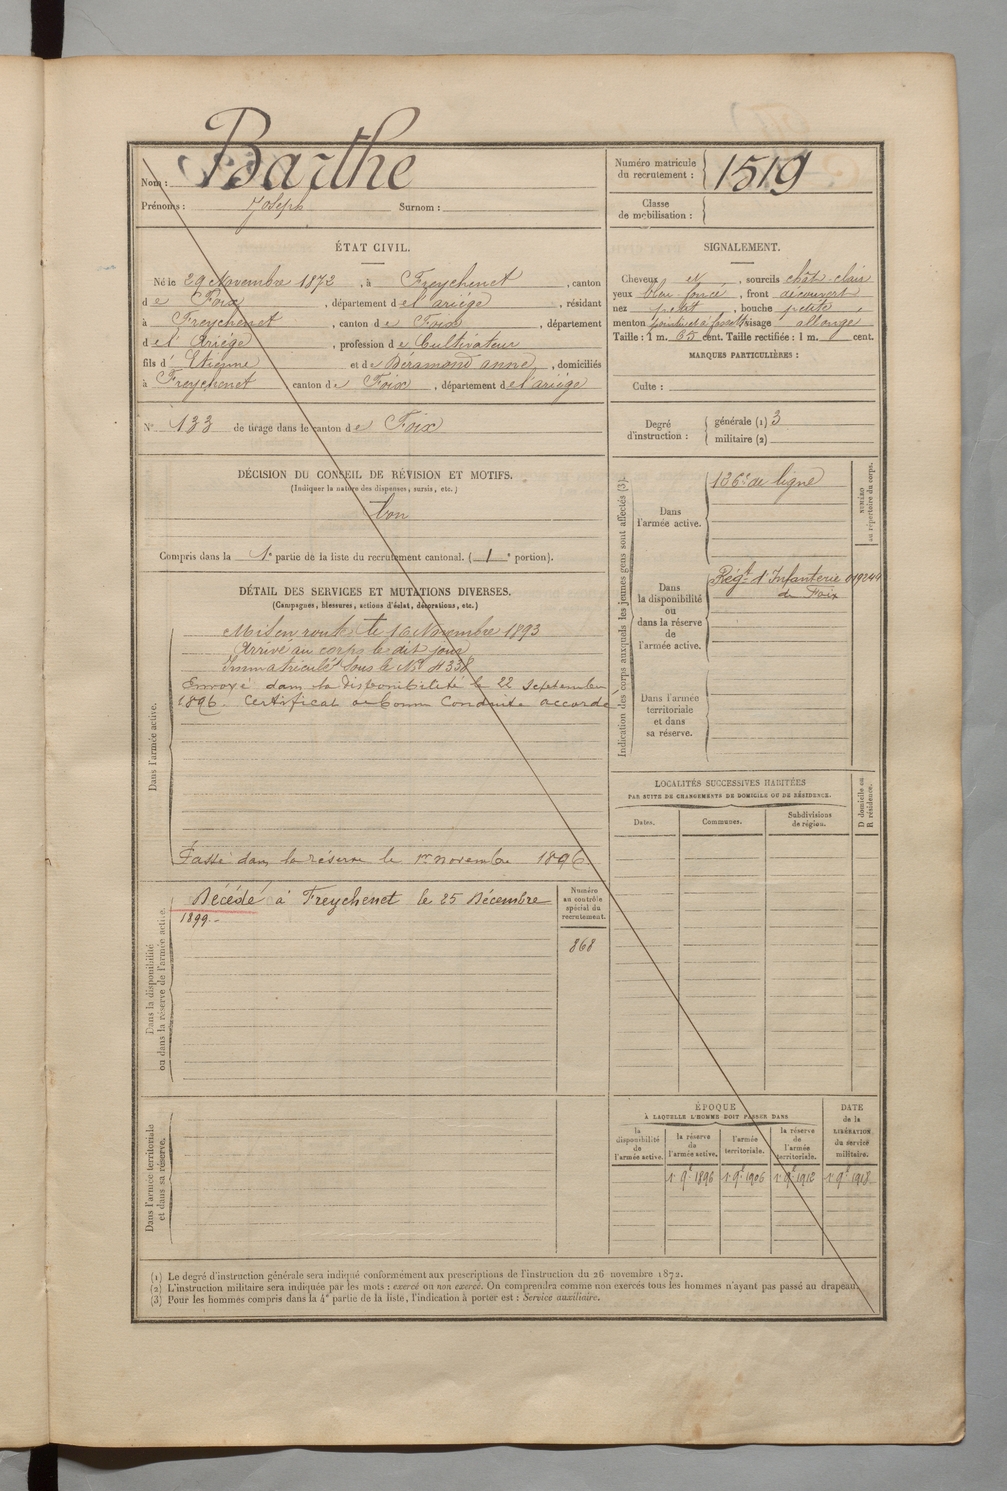 Nom : Barthe
Prénoms : Joseph Surnom :
Numéro matricule
du recrutement : 1519
Classe
de mobilisation :
ÉTAT CIVIL.
Né le 29 Novembre 1872, à Freychenet, canton
de Foix, département de l'ariége, résidant
à Freychenet, canton de Foix, département
de l'Ariége, profession de Cultivateur
fils d' Etienne et de Béramond anne, domiciliés
à Freychenet canton de Foix, département de l'ariége
N° 133 de tirage dans le canton de Foix
DÉCISION DU CONSEIL DE RÉVISION ET MOTIFS.
(Indiquer la nature des dispenses, sursis, etc.)
bon
Compris dans la 1e partie de la liste du recrutement cantonal. (1e portion).
DÉTAIL DES SERVICES ET MUTATIONS DIVERSES.
(Campagnes, blessures, actions d'éclat, décorations, etc.)
Dans l'armée active.
Mis en route le 16 Novembre 1893
Arrivé au corps le dit jour
Immatriculé sous le No 4338
Envoyé dans la disponibilité le 22 Septembre
1896. Certificat de bonne Conduite accordé
Passé dans la réserve le 1er novembre 1896
Dans la disponibilité
ou dans la réserve de l'armée active.
Décédé à Freychenet le 25 Décembre
1899.-
Numéro
au contrôle
spécial du
recrutement.
868
Dans l'armée territoriale
et dans sa réserve.
SIGNALEMENT.
Cheveux et, sourcils chât-clair
yeux bleu foncé, front découvert
nez petit, bouche petite
menton pointu et à fossette visage allongé
Taille : 1 m. 65 cent. Taille rectifiée : 1 m. cent.
MARQUES PARTICULIÈRES :
Culte :
Degré
d'instruction :
générale (1) 3
militaire (2)
Indication des corps auxquels les jeunes gens sont affectés (3).
Dans
l'armée active.
126e de ligne
NUMÉRO
au répertoire du corps.
Dans
la disponibilité
ou
dans la réserve
de
l'armée active.
Régt d'Infanterie
de Foix
Dans l'armée
territoriale
et dans
sa réserve.
LOCALITÉS SUCCESSIVES HABITÉES
PAR SUITE DE CHANGEMENTS DE DOMICILE OU DE RÉSIDENCE.
Dates. Communes. Subdivisions
de région.
D domicile ou
R résidence.
ÉPOQUE
À LAQUELLE L'HOMME DOIT PASSER DANS
la
disponibilité
de
l'armée active.
la réserve
de
l'armée active.
l'armée
territoriale.
la réserve
de
l'armée
territoriale.
DATE
de la
LIBÉRATION
du service
militaire.
1er 9bre 1896 1er 9bre 1906 1er 9bre 1912 1er 9bre 1918
(1) Le degré d'instruction générale sera indiqué conformément aux prescriptions de l'instruction du 26 novembre 1872.
(2) L'instruction militaire sera indiquée par les mots : exercé ou non exercé. On comprendra comme non exercés tous les hommes n'ayant pas passé au drapeau.
(3) Pour les hommes compris dans la 4e partie de la liste, l'indication à porter est : Service auxiliaire.